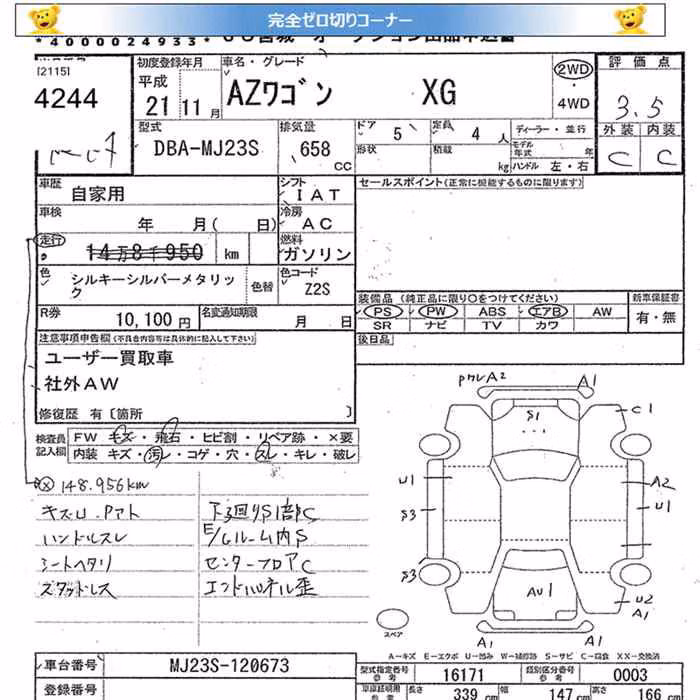 完全ゼロ切りコーナー
*4000024933*
[2115]
4244
初度登録年月
平成
21年 11月
車名・グレード
AZワゴン XG
2WD
・
4WD
評価点
3.5
外装 内装
C C
型式
DBA-MJ23S
排気量
658 CC
ドア 5
定員 4人
形状
積載 kg
ディーラー・並行
モデル年式 年
ハンドル 左・右
車歴
自家用
シフト
IAT
セールスポイント(正常に機能するものに限ります)
車検
年 月( 日)
冷房
AC
走行
14万8千950 km
燃料
ガソリン
色
シルキーシルバーメタリック
色替
色コード
Z2S
装備品 (純正品に限り○をつけてください)
PS PW ABS エアB AW
SR ナビ TV カワ
新車保証書
有・無
R券
10,100円
名変通知期限
月 日
後日品
注意事項申告欄(不具合内容等は具体的に記入して下さい)
ユーザー買取車
社外AW
修復歴 有〔箇所 〕
検査員記入欄
FW キズ・飛石・ヒビ割・リペア跡・×要
内装 キズ・汚レ・コゲ・穴・スレ・キレ・破レ
148.956km
キズU.Pアト
ハンドルスレ
シートヘタリ
スタッドレス
下廻りS1部C
E/Gルーム内S
センターフロアC
エンドパネル歪
A2 A1
S1
C1
U1 A2
S3 U1
S3
AU1
U2
A1
A1 A1
スペア
A-キズ E-エクボ U-凹み W-補修跡 S-サビ C-腐食 XX-交換済
車台番号
MJ23S-120673
登録番号
型式指定番号 参考
16171
類別区分番号 参考
0003
長さ 339 cm 幅 147 cm 高さ 166 cm